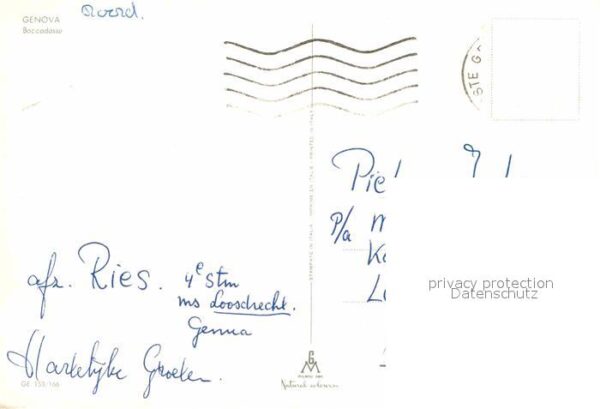 GENOVA
Boccadasse
Noord.
afz. Ries.
4e Stm
ms Loosdrecht.
Genua
Hartelijke Groeten.
GE 153/166
Pie
P/a M
K
L
privacy protection
Datenschutz